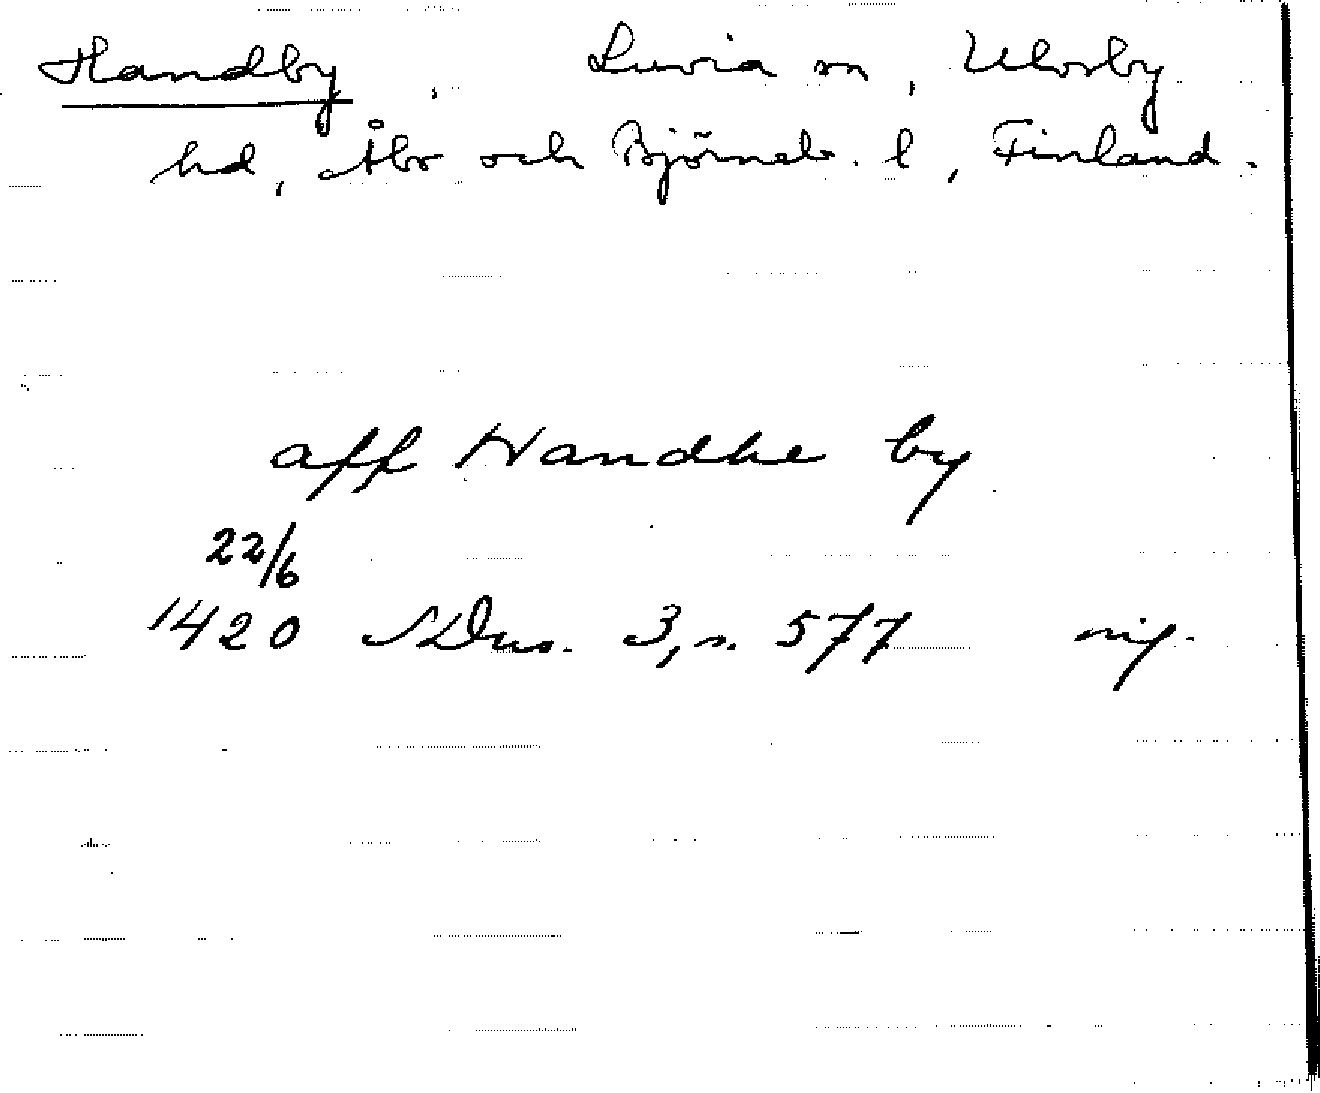 Handby, Luvia sn, Ulvsby
hd, Åbo och Björneb. l, Finland.
aff Handhe by
22/6
1420 SDns. 3, s. 577